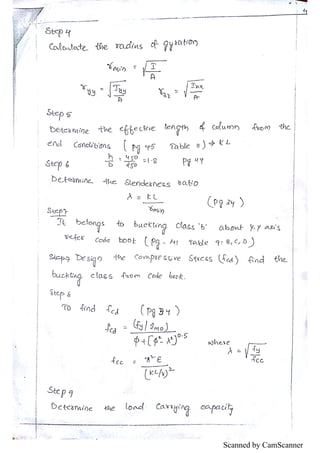 Step 4
Calculate the radius of gyration
r min = √ I / A
r yy = √ Iyy / A    r zz = √ Ixx / A
Step 5
Determine the effective length of column from the
end conditions [ pg 45 Table 11 ) → KL
Step 6    h / b = 450 / 250 = 1.8    pg 44
Determine the Slenderness ratio
λ = KL / r min    (pg 34 )
Step 7
It belongs to buckling class 'b' about y.y axis
refer code book ( pg. 41 Table 9: B, C, D )
Step 9 Design the compressive stress (fcd) find the
buckling class from code book.
Step 8
To find fcd    ( pg 34 )
fcd = (fy / γmo) / φ + [φ² - λ²]^0.5    where
λ = √ fy / fcc
fcc = π² E / (KL/r)²
Step 9
Determine the load Carrying capacity
Scanned by CamScanner